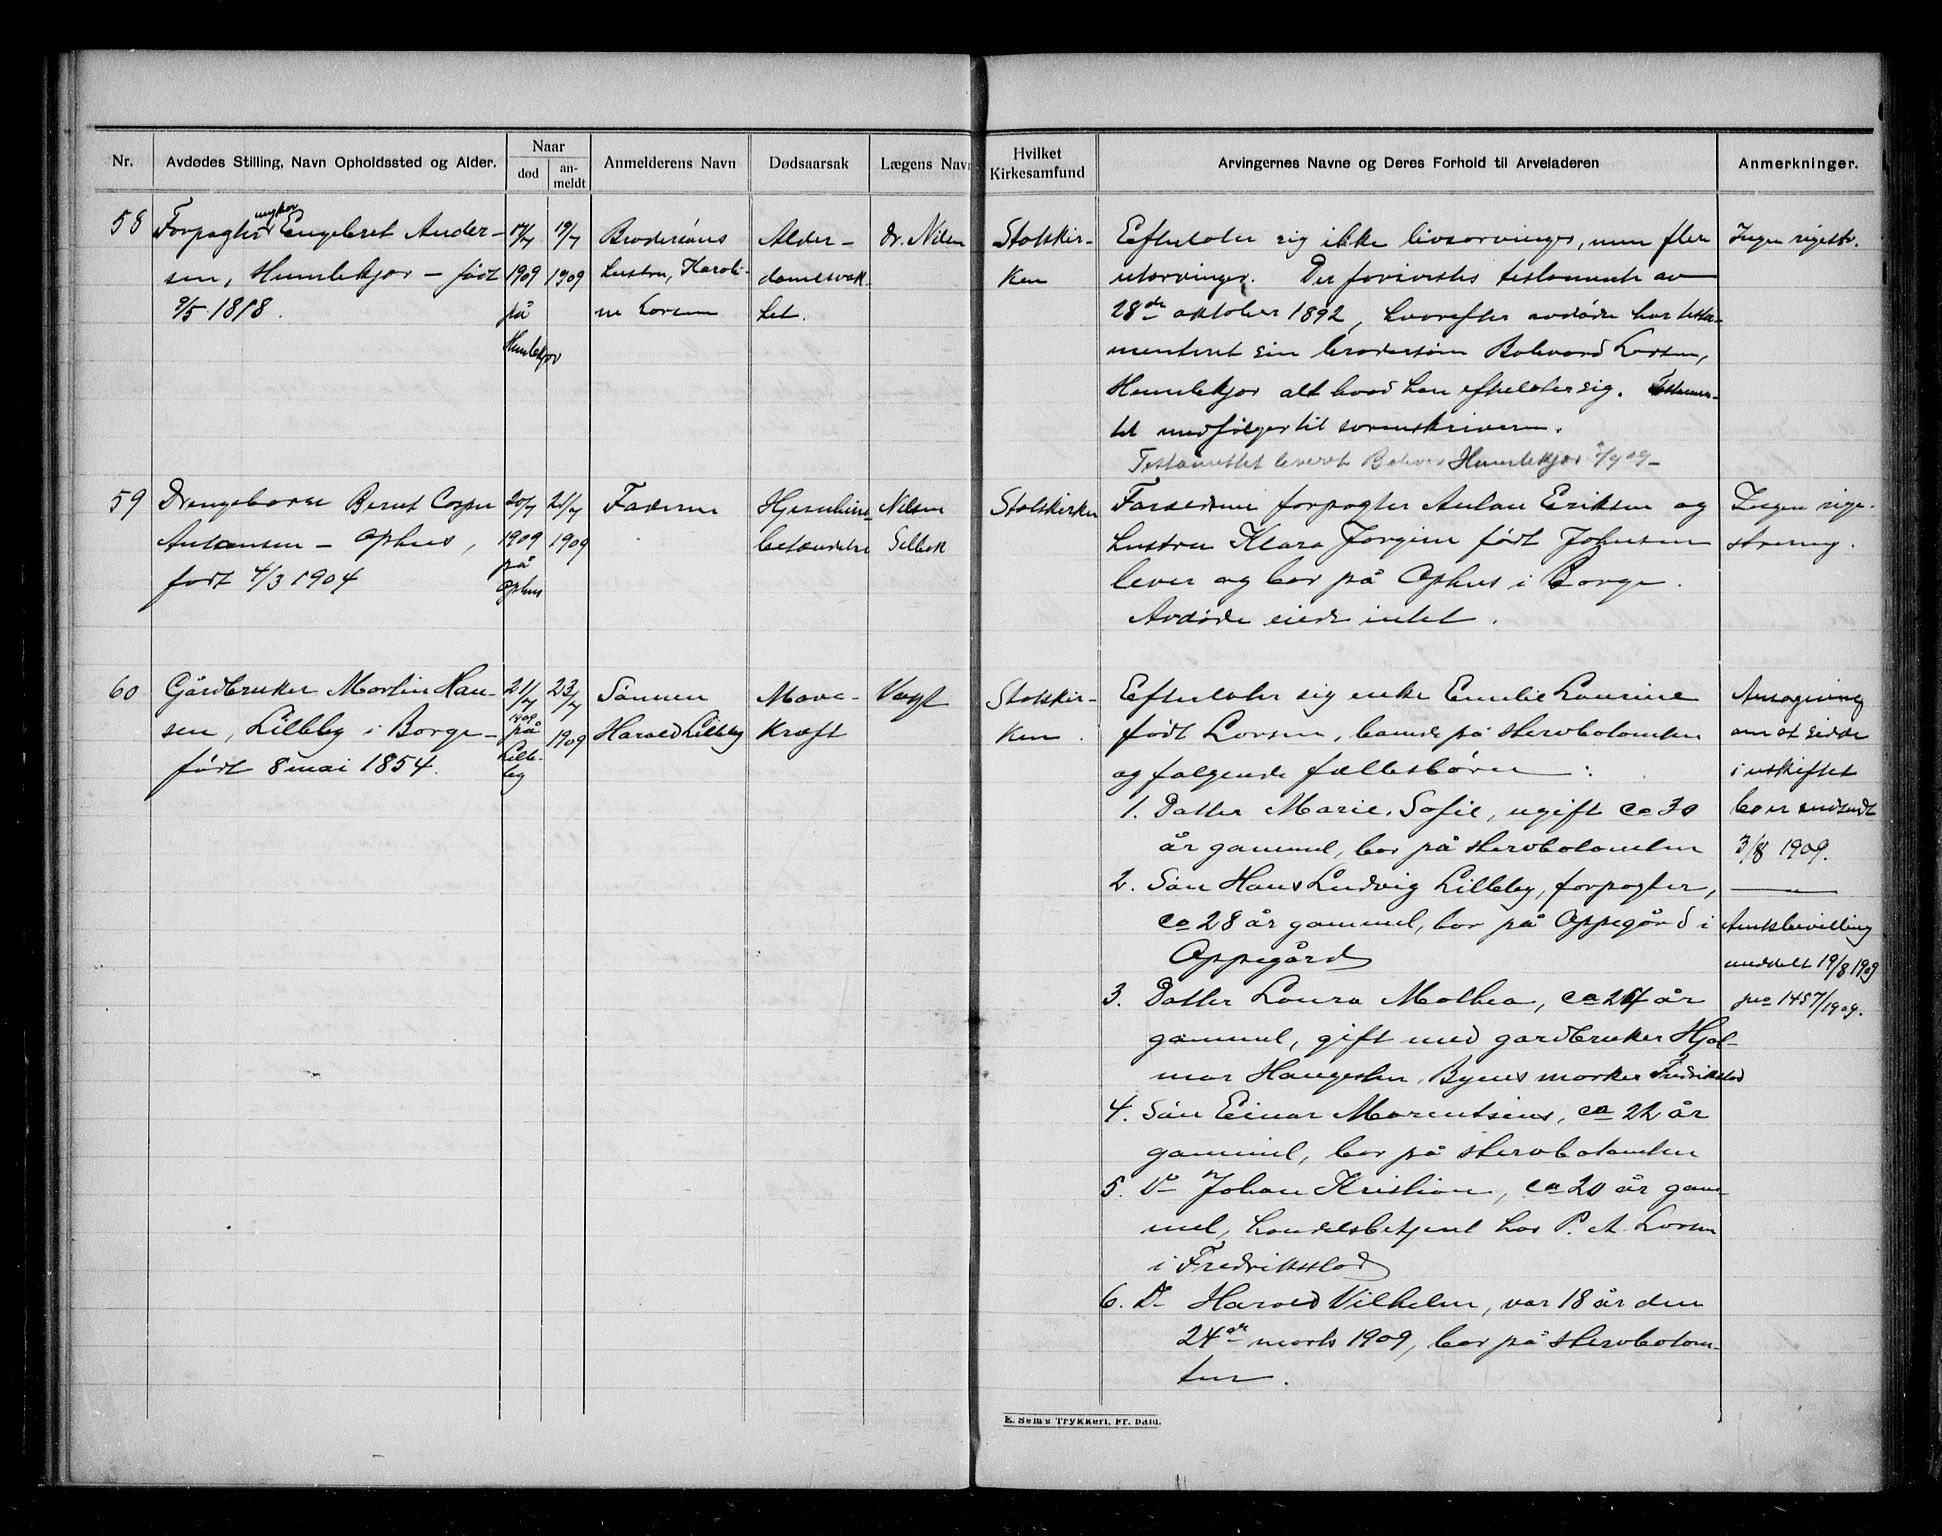 Nr.
Avdødes Stilling, Navn Opholdssted og Alder.
Naar
død
an-
meldt
Anmelderens Navn
Dødsaarsak
Lægens Navn
Hvilket
Kirkesamfund
Arvingernes Navne og Deres Forhold til Arveladeren
Anmerkninger.
58
Forpagter ungkar Engebret Ander-
sen, Humlekjær - født
9/5 1818.
17/7
1909
på
Humlekjær
19/7
1909
Brodersøns
hustru, Karoli-
ne Larsen
Alder-
domssvak-
het.
Dr. Nilsen
Statskir-
ken
Efterlater sig ikke livsarvinger, men flere
utarvinger. Der forevistes testamente av
28de oktober 1892, hvorefter avdøde har testa-
menteret sin brodersøn Bolevard Larsen,
Humlekjær alt hvad han efterlater sig. Testamen-
tet medfølger til sorenskriveren.
Testamentet leveret Humlekjær
Ingen registr.
59
Drengebarn Bernt Casper
Antonsen - Ophus,
født 4/3 1904
20/7
1909
på
Ophus
21/7
1909
Faderen
Hjernehinde-
betændelse
Nilsen
Selbak
Statskirken
Forældrene forpagter Anton Eriksen og
hustru Klara Jørgine født Johnsen
lever og bor på Ophus i Borge.
Avdøde eiede intet.
Ingen regi-
strering.
60
Gårdbruker Martin Han-
sen, Lilleby i Borge -
født 8 mai 1854.
21/7
1909
på
Lille-
by
23/7
1909
Sønnen
Harald Lilleby
Mave-
kræft
Vogt
Statskir-
ken.
Efterlater sig enke Emelie Laurine
født Larsen, boende på stervbotomten
og følgende fællesbørn:
1. Datter Marie Sofie, ugift ca 30
år gammel, bor på stervbotomten
2. Søn Hans Ludvig Lilleby, forpagter,
ca 28 år gammel, bor på Oppegård i
Oppegård
3. Datter Laura Mathea, ca år
gammel, gift med gårdbruker Hjal-
mar Haugesten, Byens marker Fredrikstad
4. Søn Einar Marentsius, ca 22 år
gammel, bor på stervbotomten
5. Do Johan Kristian, ca 20 år gam-
mel, handelsbetjent hos P. A. Larsen
i Fredriksstad
6. Do Harald Vilhelm, var 18 år den
24de marts 1909, bor på stervbotom-
ten.
Ansøgning
om at sidde
i uskiftet
bo er indsendt
3/8 1909.
Amtsbevilling
meddelt 19/8 1909
jno 1457/1909.
E. Sem's Trykkeri, Fr. hald.